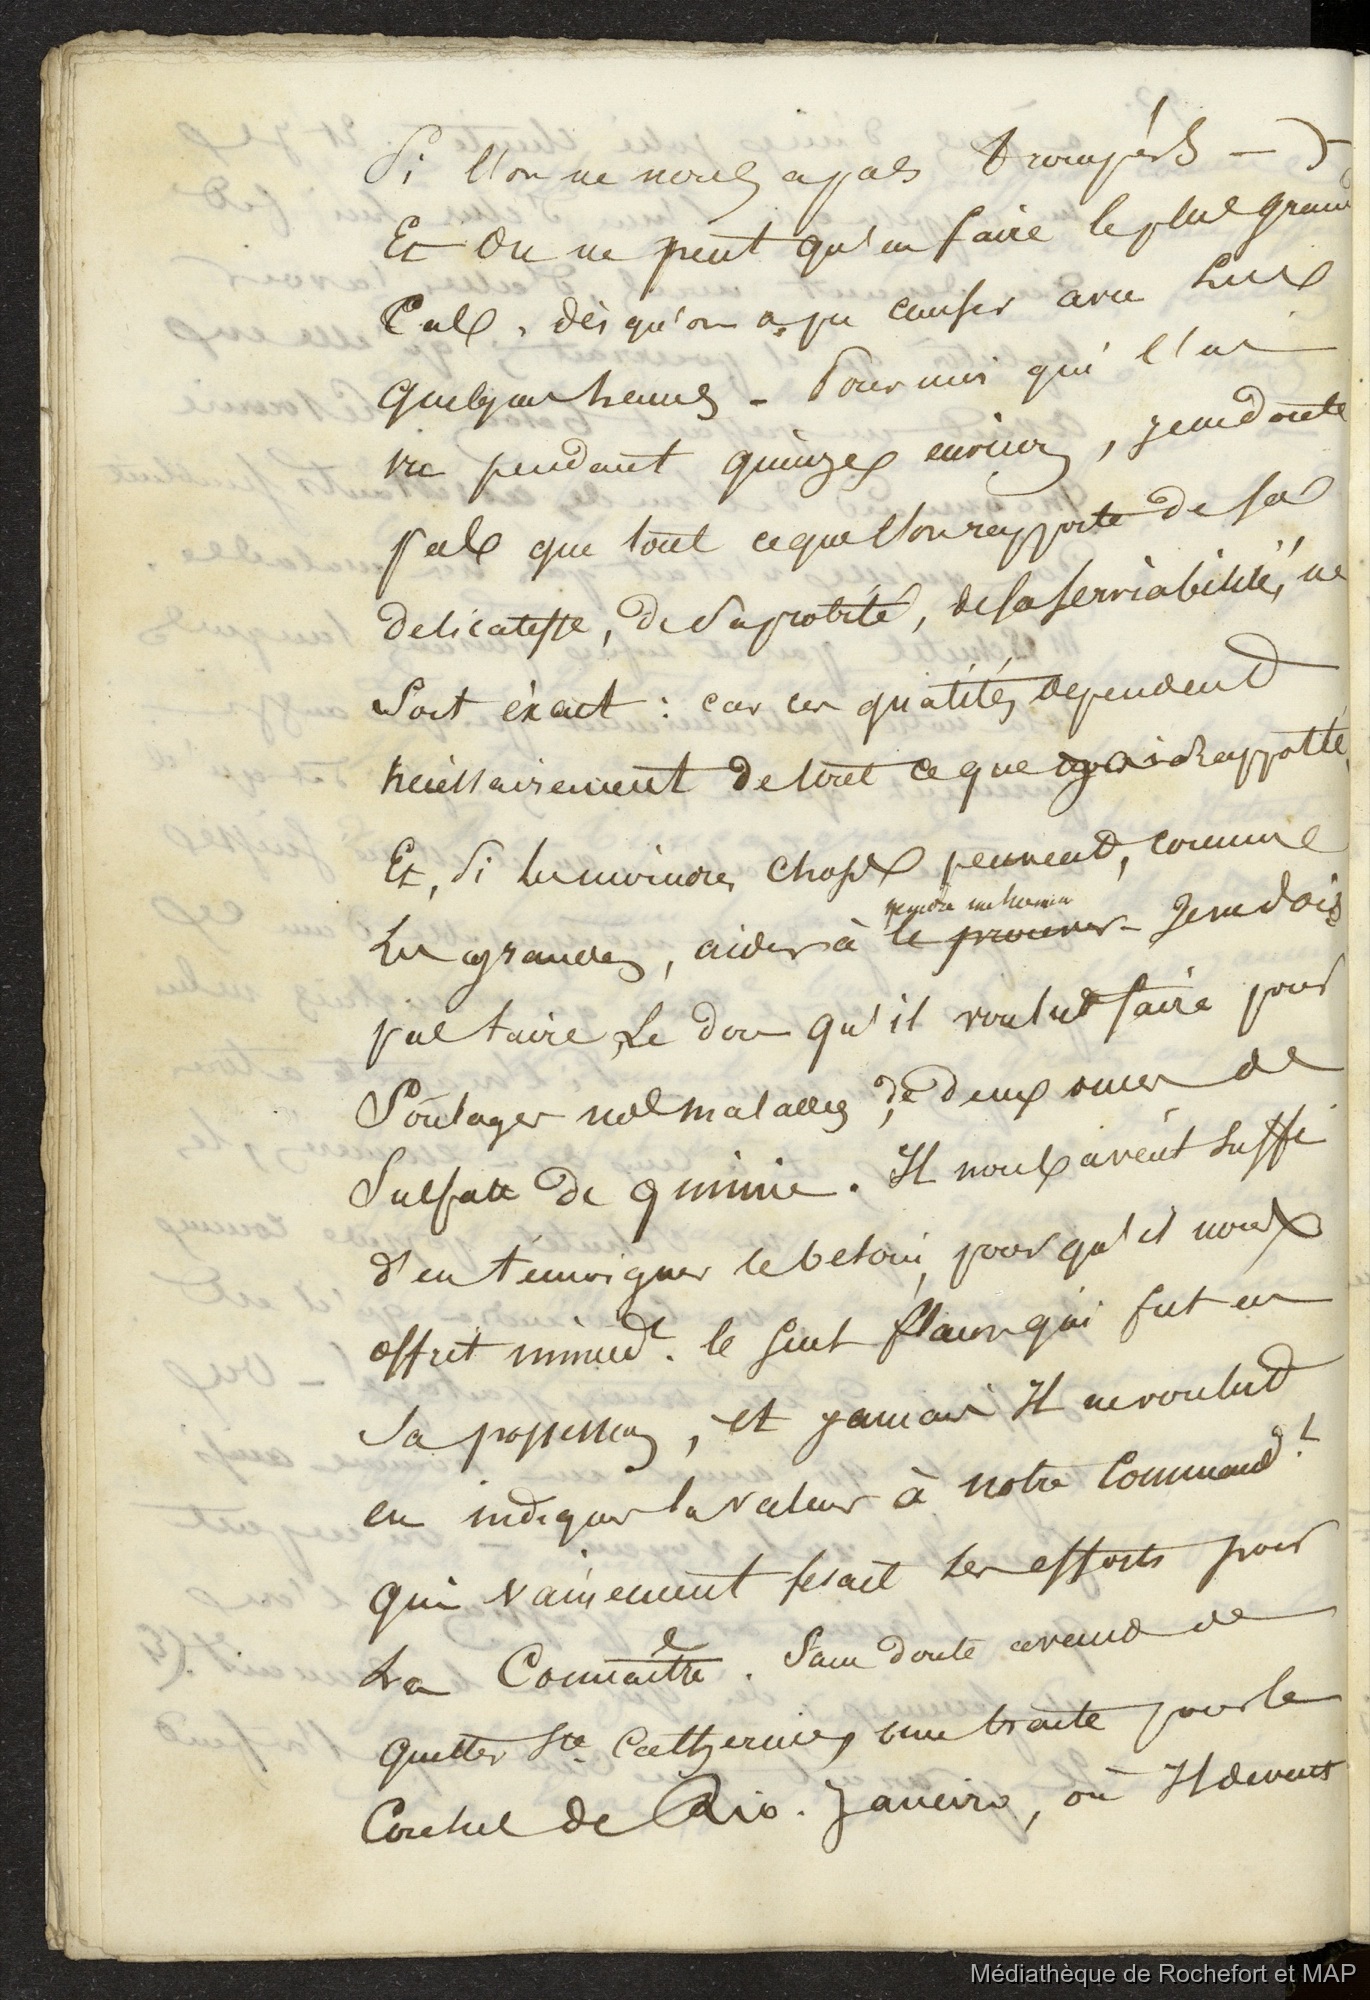 Si l'on ne nous a pas trompés —
Et on ne peut qu'en faire le plus grand
Cas, dès qu'on a pu causer avec lui
quelques heures — Pour moi qui l'ai
vu pendant quinze environ, je ne doute
pas que tout ce que l'on rapporte de sa
delicatesse, de sa probité, de sa serviabilité, ne
Soit éxact : car ces qualités dependent
necessairement de tout ce que j'ai rapporté,
Et, Si les moindres choses peuvent, comme
peindre un homme
les grandes, aider à le prouver — Je ne dois
pas taire le don qu'il voulut faire pour
Soulager nos malades, de deux onces de
Sulfate de quinine. Il nous avait suffi
d'en témoigner le besoin, pour qu'il nous
offrit immédt. le seul flacon qui fut en
Sa possession, et jamais Il ne voulut
en indiquer la valeur à notre Commandt.
qui vainement fesait ses efforts pour
la Connaitre. Sans doute avant de
quitter Ste Catherine, une traite pour le
Consul de Rio-Janeiro, où Il devait